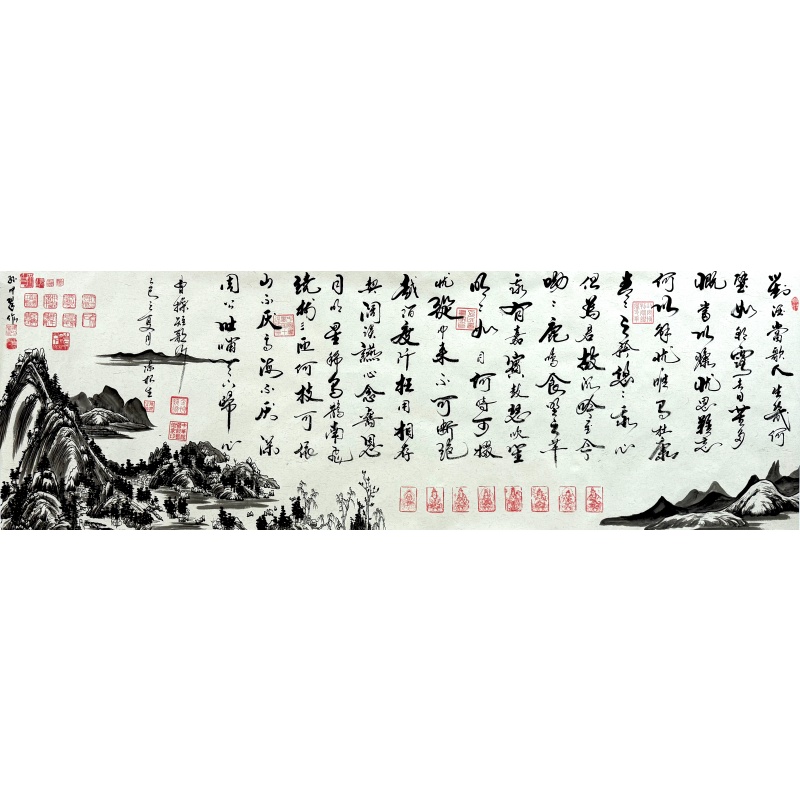 對酒當歌人生幾何
譬如朝露去日苦多
慨當以慷憂思難忘
何以解憂唯有杜康
青〻子衿悠〻我心
但為君故沉吟至今
呦〻鹿鳴食野之苹
我有嘉賓鼓瑟吹笙
明〻如月何時可掇
憂從中來不可斷絕
越陌度阡枉用相存
契闊談讌心念舊恩
月明星稀烏鵲南飛
繞樹三匝何枝可依
山不厭高海不厭深
周公吐哺天下歸心
曹操短歌行
夏月